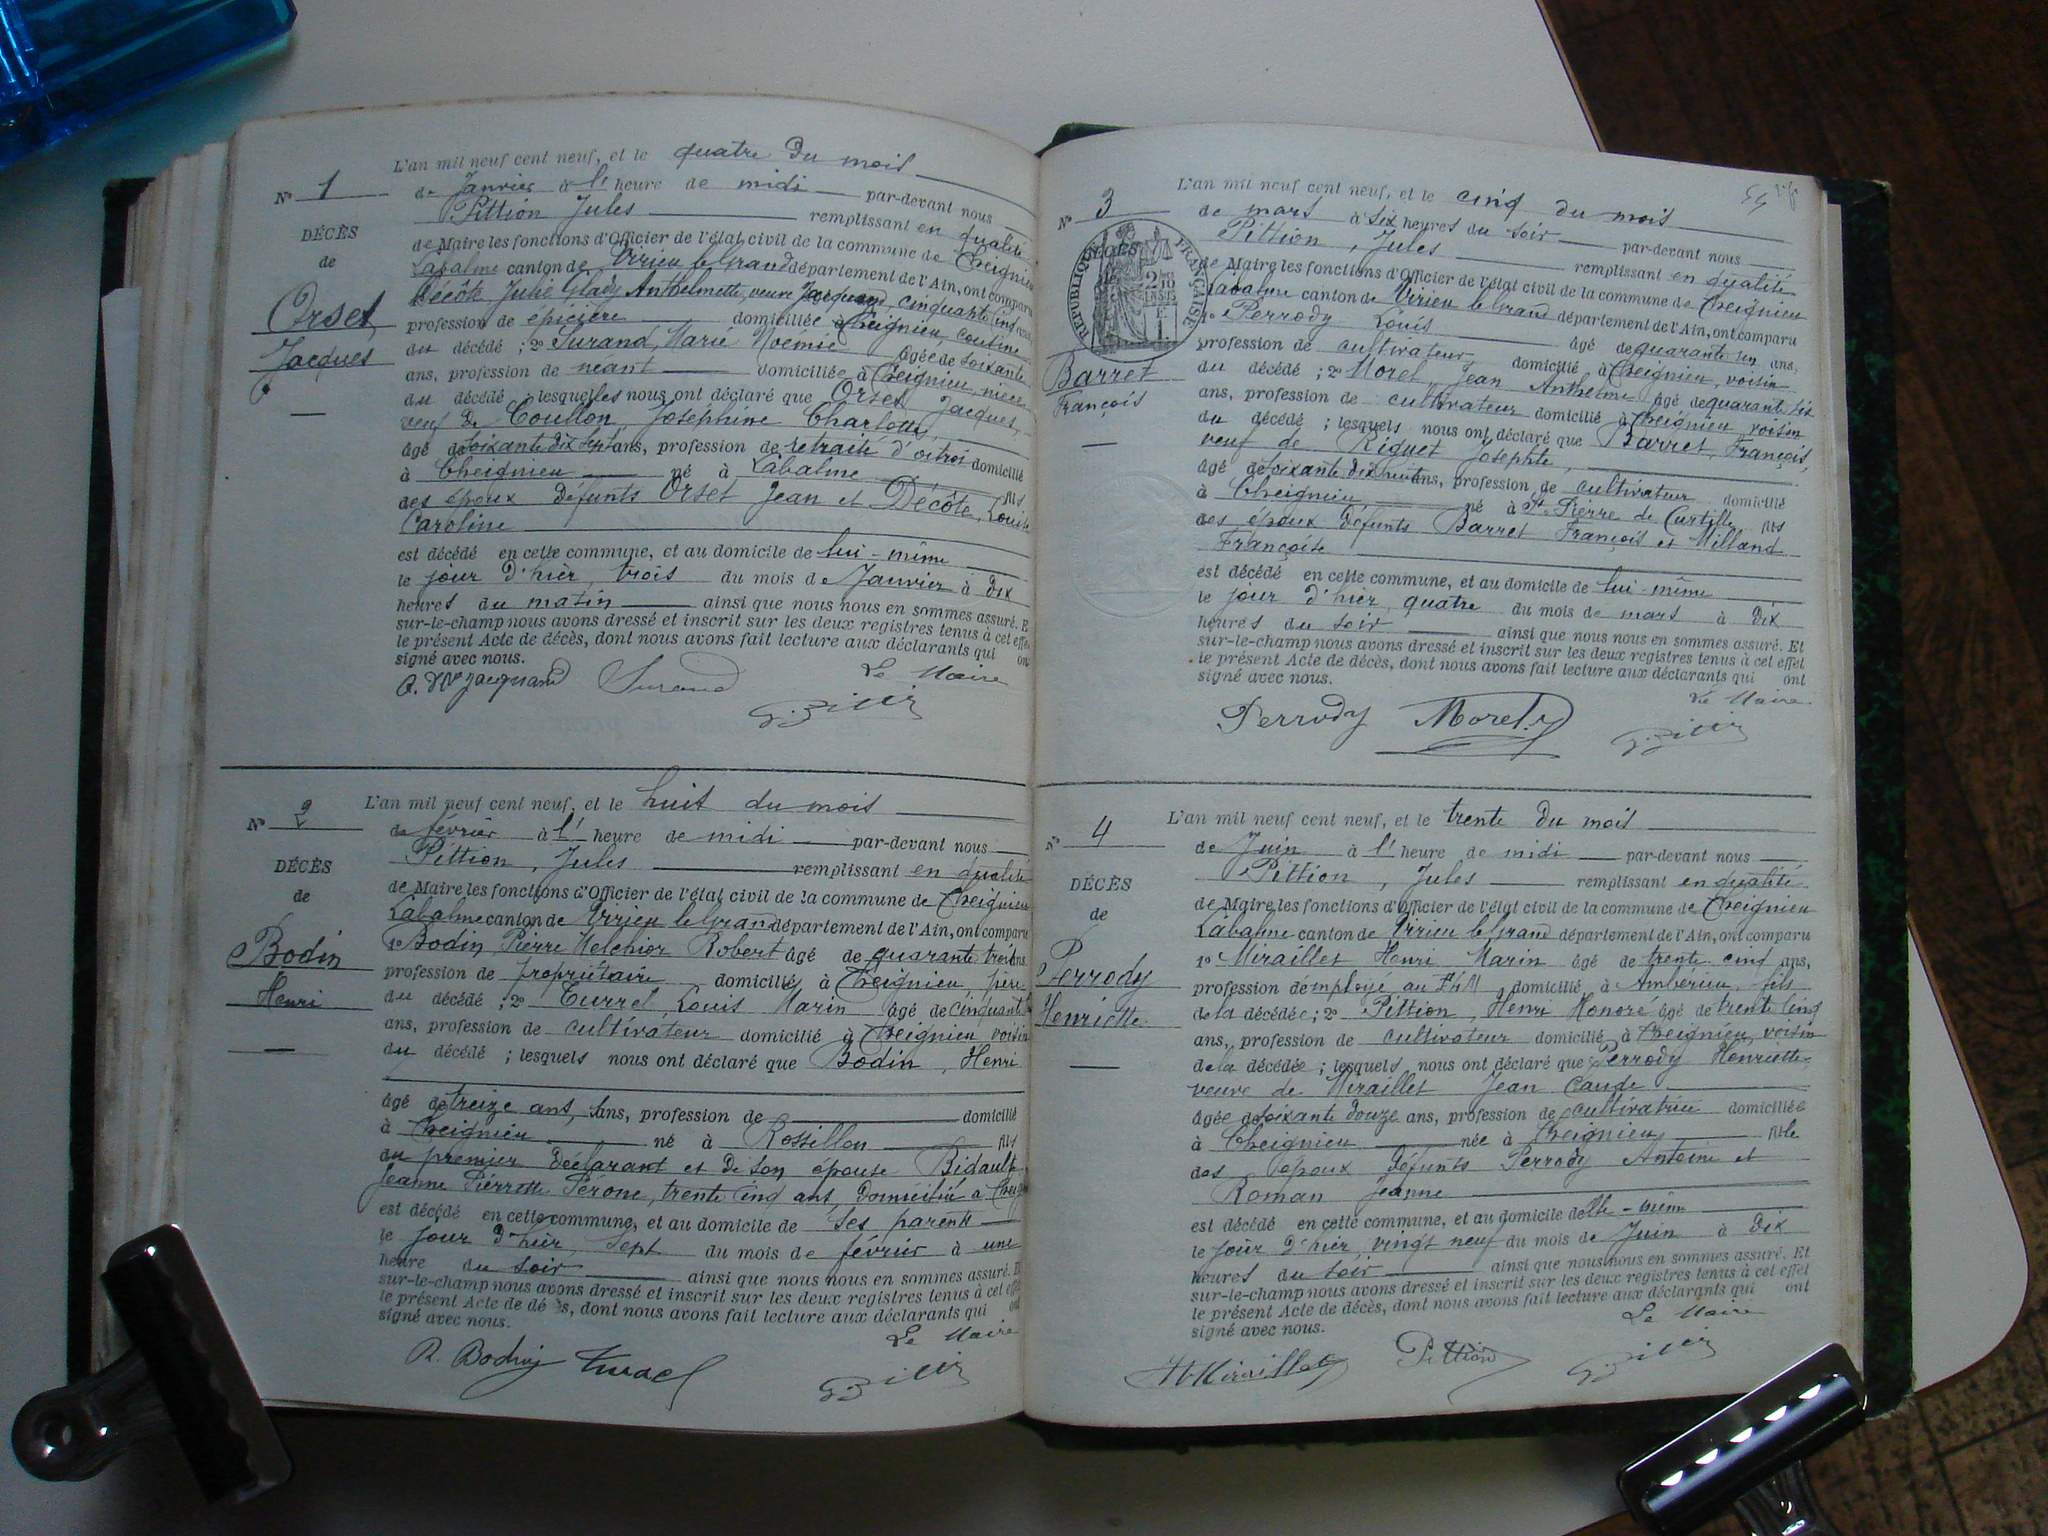 L'an mil neuf cent neuf, et le quatre du mois
N° 1
de Janvier à l' heure de midi par-devant nous
Pittion Jules remplissant en qualité
DÉCÈS
de Maire les fonctions d'Officier de l'état civil de la commune de Cheignieu
de
Labalme canton de Virieu le Grand département de l'Ain, ont comparu
Orset
Jacques
Décôte Julie Glady Anthelmette, veuve Jacquand cinquante cinq ans,
profession de épicière domiciliée à Cheignieu, cousine
du décédé ; 2° Surand, Marie Noémie âgée de soixante
ans, profession de néant domiciliée à Cheignieu, nièce
du décédé lesquelles nous ont déclaré que Orset Jacques,
veuf de Coullon, Joséphine Charlotte,
âgé de soixante dix sept ans, profession de retraité d'octroi domicilié
à Cheignieu né à Labalme fils
des époux défunts Orset Jean et Décôte, Louise
Caroline
est décédé en cette commune, et au domicile de lui-même
le jour d'hier, trois du mois de Janvier à dix
heures du matin ainsi que nous nous en sommes assuré. E
sur-le-champ nous avons dressé et inscrit sur les deux registres tenus à cet effe
le présent Acte de décès, dont nous avons fait lecture aux déclarants qui on
signé avec nous.
Vve Jacquand Surand Le Maire
L'an mil neuf cent neuf, et le huit du mois
N° 2
de février à l' heure de midi par-devant nous
Pittion, Jules remplissant en qualité
DÉCÈS
de Maire les fonctions d'Officier de l'état civil de la commune de Cheignieu
de
Labalme canton de Virieu le Grand département de l'Ain, ont comparu
Bodin
Henri
1° Bodin, Pierre Melchior Robert âgé de quarante trois ans
profession de propriétaire domicilié à Cheignieu, père
du décédé ; 2° Turrel, Louis Marin âgé de cinquante
ans, profession de cultivateur domicilié à Cheignieu voisin
du décédé ; lesquels nous ont déclaré que Bodin, Henri
âgé de treize ans, sans, profession de domicilié
à Cheignieu né à Rossillon fils
du premier déclarant et de son épouse Bidault
Jeanne Pierrette Pérone, trente cinq ans, domiciliée à
est décédé en cette commune, et au domicile de ses parents
le jour d'hier, sept du mois de février à une
heure du soir ainsi que nous nous en sommes assuré. E
sur-le-champ nous avons dressé et inscrit sur les deux registres tenus à cet effe
le présent Acte de dé s, dont nous avons fait lecture aux déclarants qui ont
signé avec nous.
R. Bodin Turrel Le Maire
L'an mil neuf cent neuf, et le cinq du mois
N° 3
de mars à six heures du soir par-devant nous
Pittion, Jules remplissant en qualité
RÉPUBLIQUE FRANÇAISE
de Maire les fonctions d'Officier de l'état civil de la commune de Cheignieu
Labalme canton de Virieu le Grand département de l'Ain, ont comparu
1° Perrody Louis âgé de quarante un ans,
profession de cultivateur domicilié à Cheignieu, voisin
Barret
François
du décédé ; 2° Morel, Jean Anthelme âgé de quarante six
ans, profession de cultivateur domicilié à Cheignieu voisin
du décédé ; lesquels nous ont déclaré que Barret, François,
veuf de Riquet Josephte,
âgé de soixante dix huit ans, profession de cultivateur domicilié
à Cheignieu né à St Pierre de Curtille fils
des époux défunts Barret François et Milland
Françoise
est décédé en cette commune, et au domicile de lui-même
le jour d'hier, quatre du mois de mars à dix
heures du soir ainsi que nous nous en sommes assuré. Et
sur-le-champ nous avons dressé et inscrit sur les deux registres tenus à cet effet
le présent Acte de décès, dont nous avons fait lecture aux déclarants qui ont
signé avec nous.
Perrody Morel Le Maire
L'an mil neuf cent neuf, et le trente du mois
N° 4
de Juin à l' heure de midi par-devant nous
Pittion, Jules remplissant en qualité
DÉCÈS
de Maire les fonctions d'Officier de l'état civil de la commune de Cheignieu
de
Labalme canton de Virieu le Grand département de l'Ain, ont comparu
Perrody
Henriette
1° Miraillet Henri Marin âgé de trente cinq ans,
profession d'employé au domicilié à Ambérieu, fils
de la décédée ; 2° Pittion, Henri Honoré âgé de trente cinq
ans, profession de cultivateur domicilié à Cheignieu, voisin
de la décédée ; lesquels nous ont déclaré que Perrody Henriette
veuve de Miraillet Jean Caude
âgée de soixante douze ans, profession de cultivatrice domiciliée
à Cheignieu née à Cheignieu fille
des époux défunts Perrody Antoine et
Roman Jeanne
est décédé en cette commune, et au domicile de elle-même
le jour d'hier, vingt neuf du mois de Juin à dix
heures du soir ainsi que nous nous en sommes assuré. Et
sur-le-champ nous avons dressé et inscrit sur les deux registres tenus à cet effet
le présent Acte de décès, dont nous avons fait lecture aux déclarants qui ont
signé avec nous.
H. Miraillet Pittion Le Maire